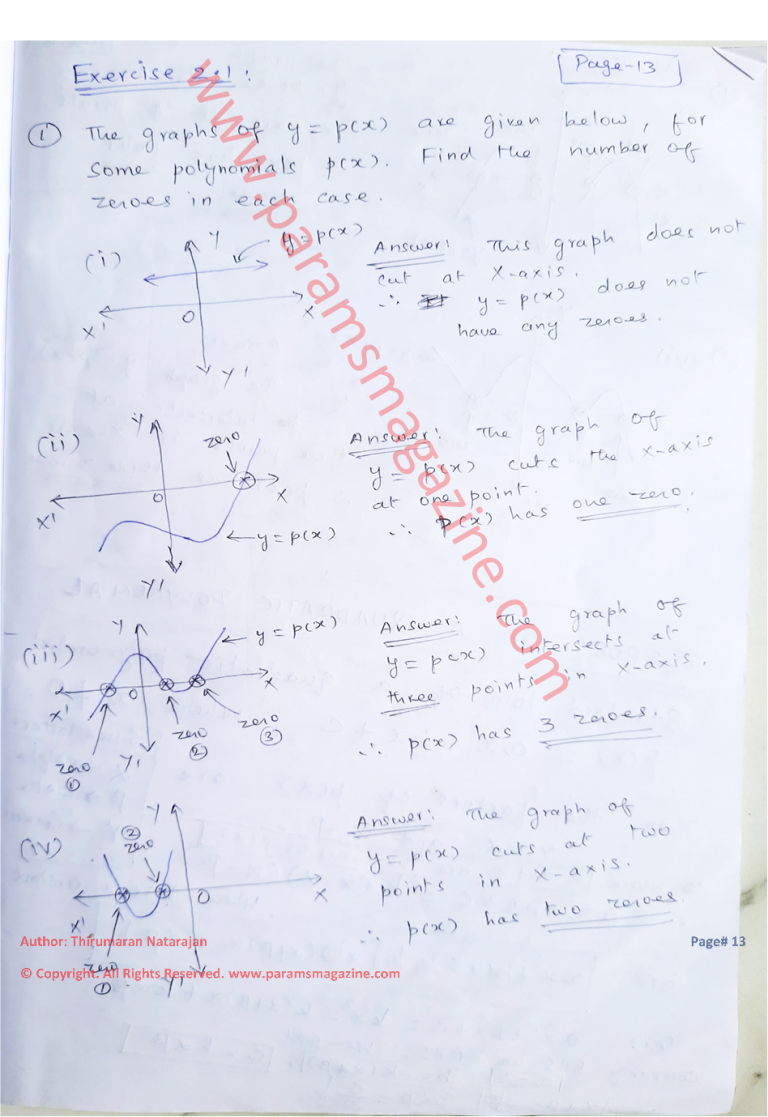 Exercise 2.1:
Page-13
① The graphs of y = p(x) are given below, for
some polynomials p(x). Find the number of
zeroes in each case.
(i)
Y
y = p(x)
X'
O
X
Y'
Answer: This graph does not
cut at X-axis.
∴ y = p(x) does not
have any zeroes.
(ii)
Y
zero
X'
O
X
y = p(x)
Y'
Answer: The graph of
y = p(x) cuts the X-axis
at one point.
∴ p(x) has one zero.
(iii)
Y
y = p(x)
X'
O
X
Y'
zero ①
zero ②
zero ③
Answer: The graph of
y = p(x) intersects at
three points in X-axis.
∴ p(x) has 3 zeroes.
(iv)
Y
② zero
X'
O
X
zero ①
Y'
Answer: The graph of
y = p(x) cuts at two
points in X-axis.
∴ p(x) has two zeroes.
www.paramsmagazine.com
Author: Thirumaran Natarajan
Page# 13
© Copyright. All Rights Reserved. www.paramsmagazine.com